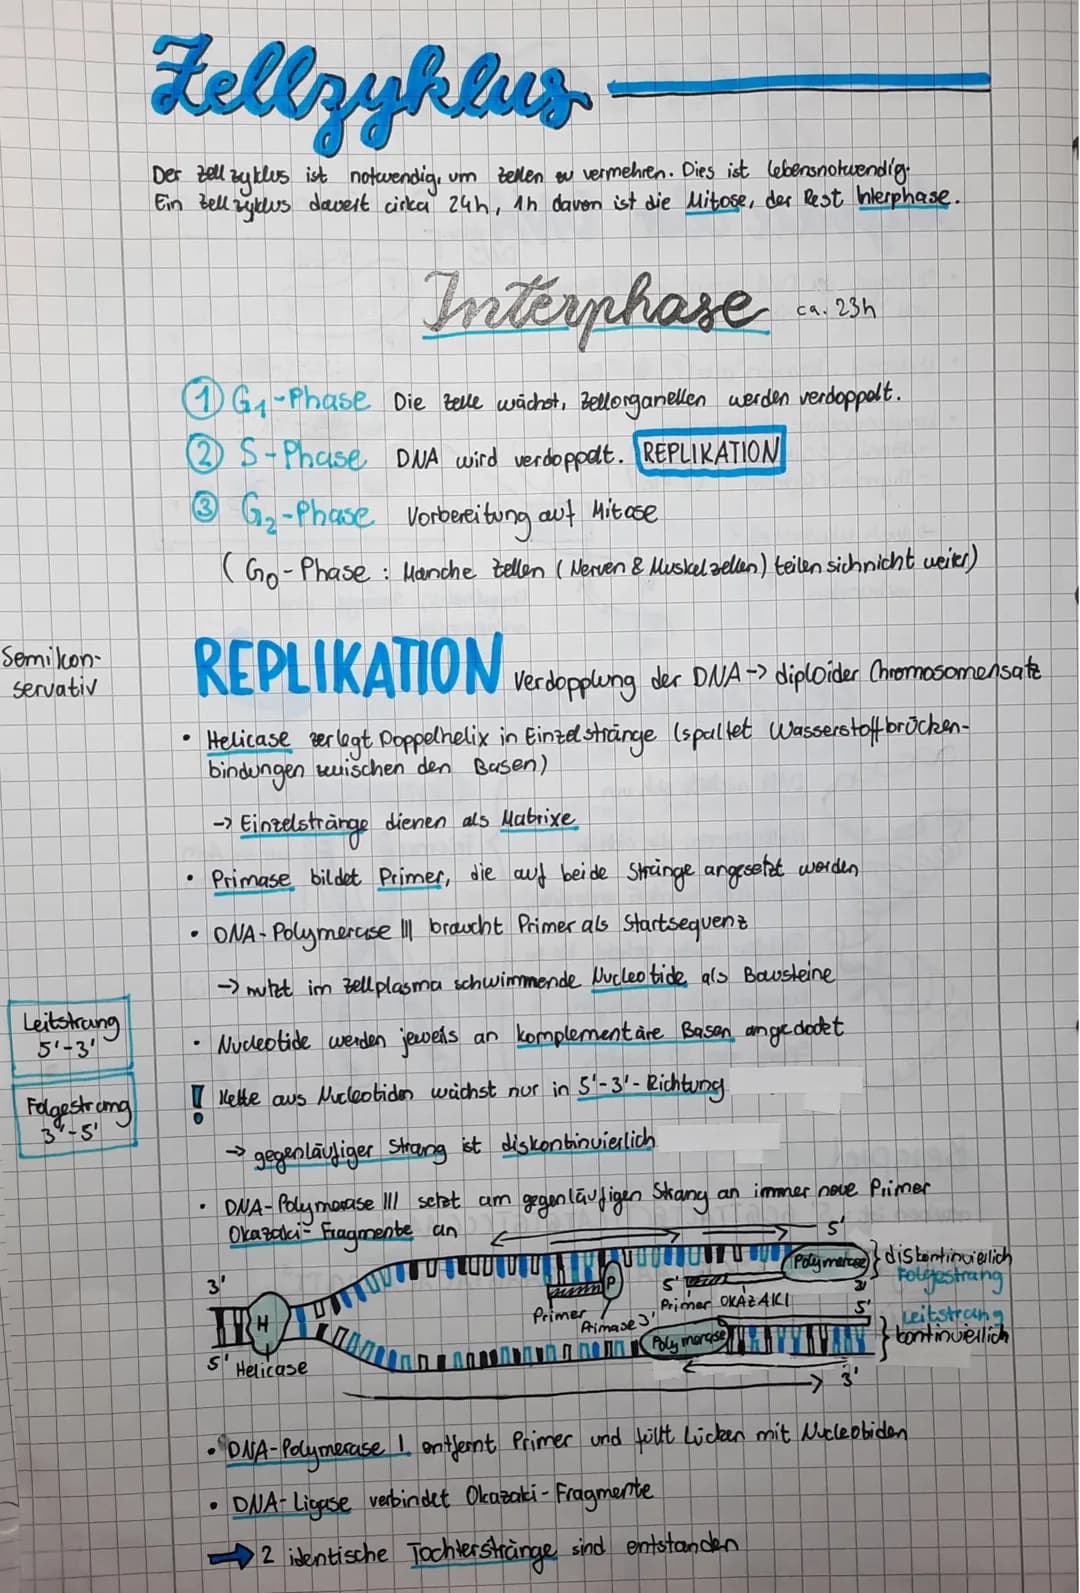 Zellzyklus
Der Zellzyklus ist notwendig, um Zellen zu vermehren. Dies ist lebensnotwendig.
Ein Zellzyklus dauert cirka 24h, 1h davon ist die Mitose, der Rest Interphase.
Interphase ca. 23h
① G1-Phase Die Zelle wächst, Zellorganellen werden verdoppelt.
② S-Phase DNA wird verdoppelt. REPLIKATION
③ G2-Phase Vorbereitung auf Mitose
(G0-Phase: Manche Zellen (Nerven & Muskelzellen) teilen sich nicht weiter)
Semikon-
servativ
REPLIKATION Verdopplung der DNA -> diploider Chromosomensatz
• Helicase zerlegt Doppelhelix in Einzelstränge (spaltet Wasserstoffbrücken-
bindungen zwischen den Basen)
-> Einzelstränge dienen als Matrixe
• Primase bildet Primer, die auf beide Stränge angesetzt werden
• DNA-Polymerase III braucht Primer als Startsequenz
-> nutzt im Zellplasma schwimmende Nucleotide als Bausteine
Leitstrang
5'-3'
• Nucleotide werden jeweils an komplementäre Basen angedockt
Folgestrang
3'-5'
! Kette aus Nucleotiden wächst nur in 5'-3'-Richtung
-> gegenläufiger Strang ist diskontinuierlich
• DNA-Polymerase III setzt am gegenläufigen Strang an immer neue Primer
Okazaki-Fragmente an
5'
3'
Polymerase
} diskontinuierlich
Folgestrang
P
5'
3'
Primer
Primase
3'
Primer OKAZAKI
5'
Leitstrang
H
Polymerase
} kontinuierlich
5' Helicase
3'
• DNA-Polymerase I entfernt Primer und füllt Lücken mit Nucleotiden
• DNA-Ligase verbindet Okazaki-Fragmente
➡ 2 identische Tochterstränge sind entstanden